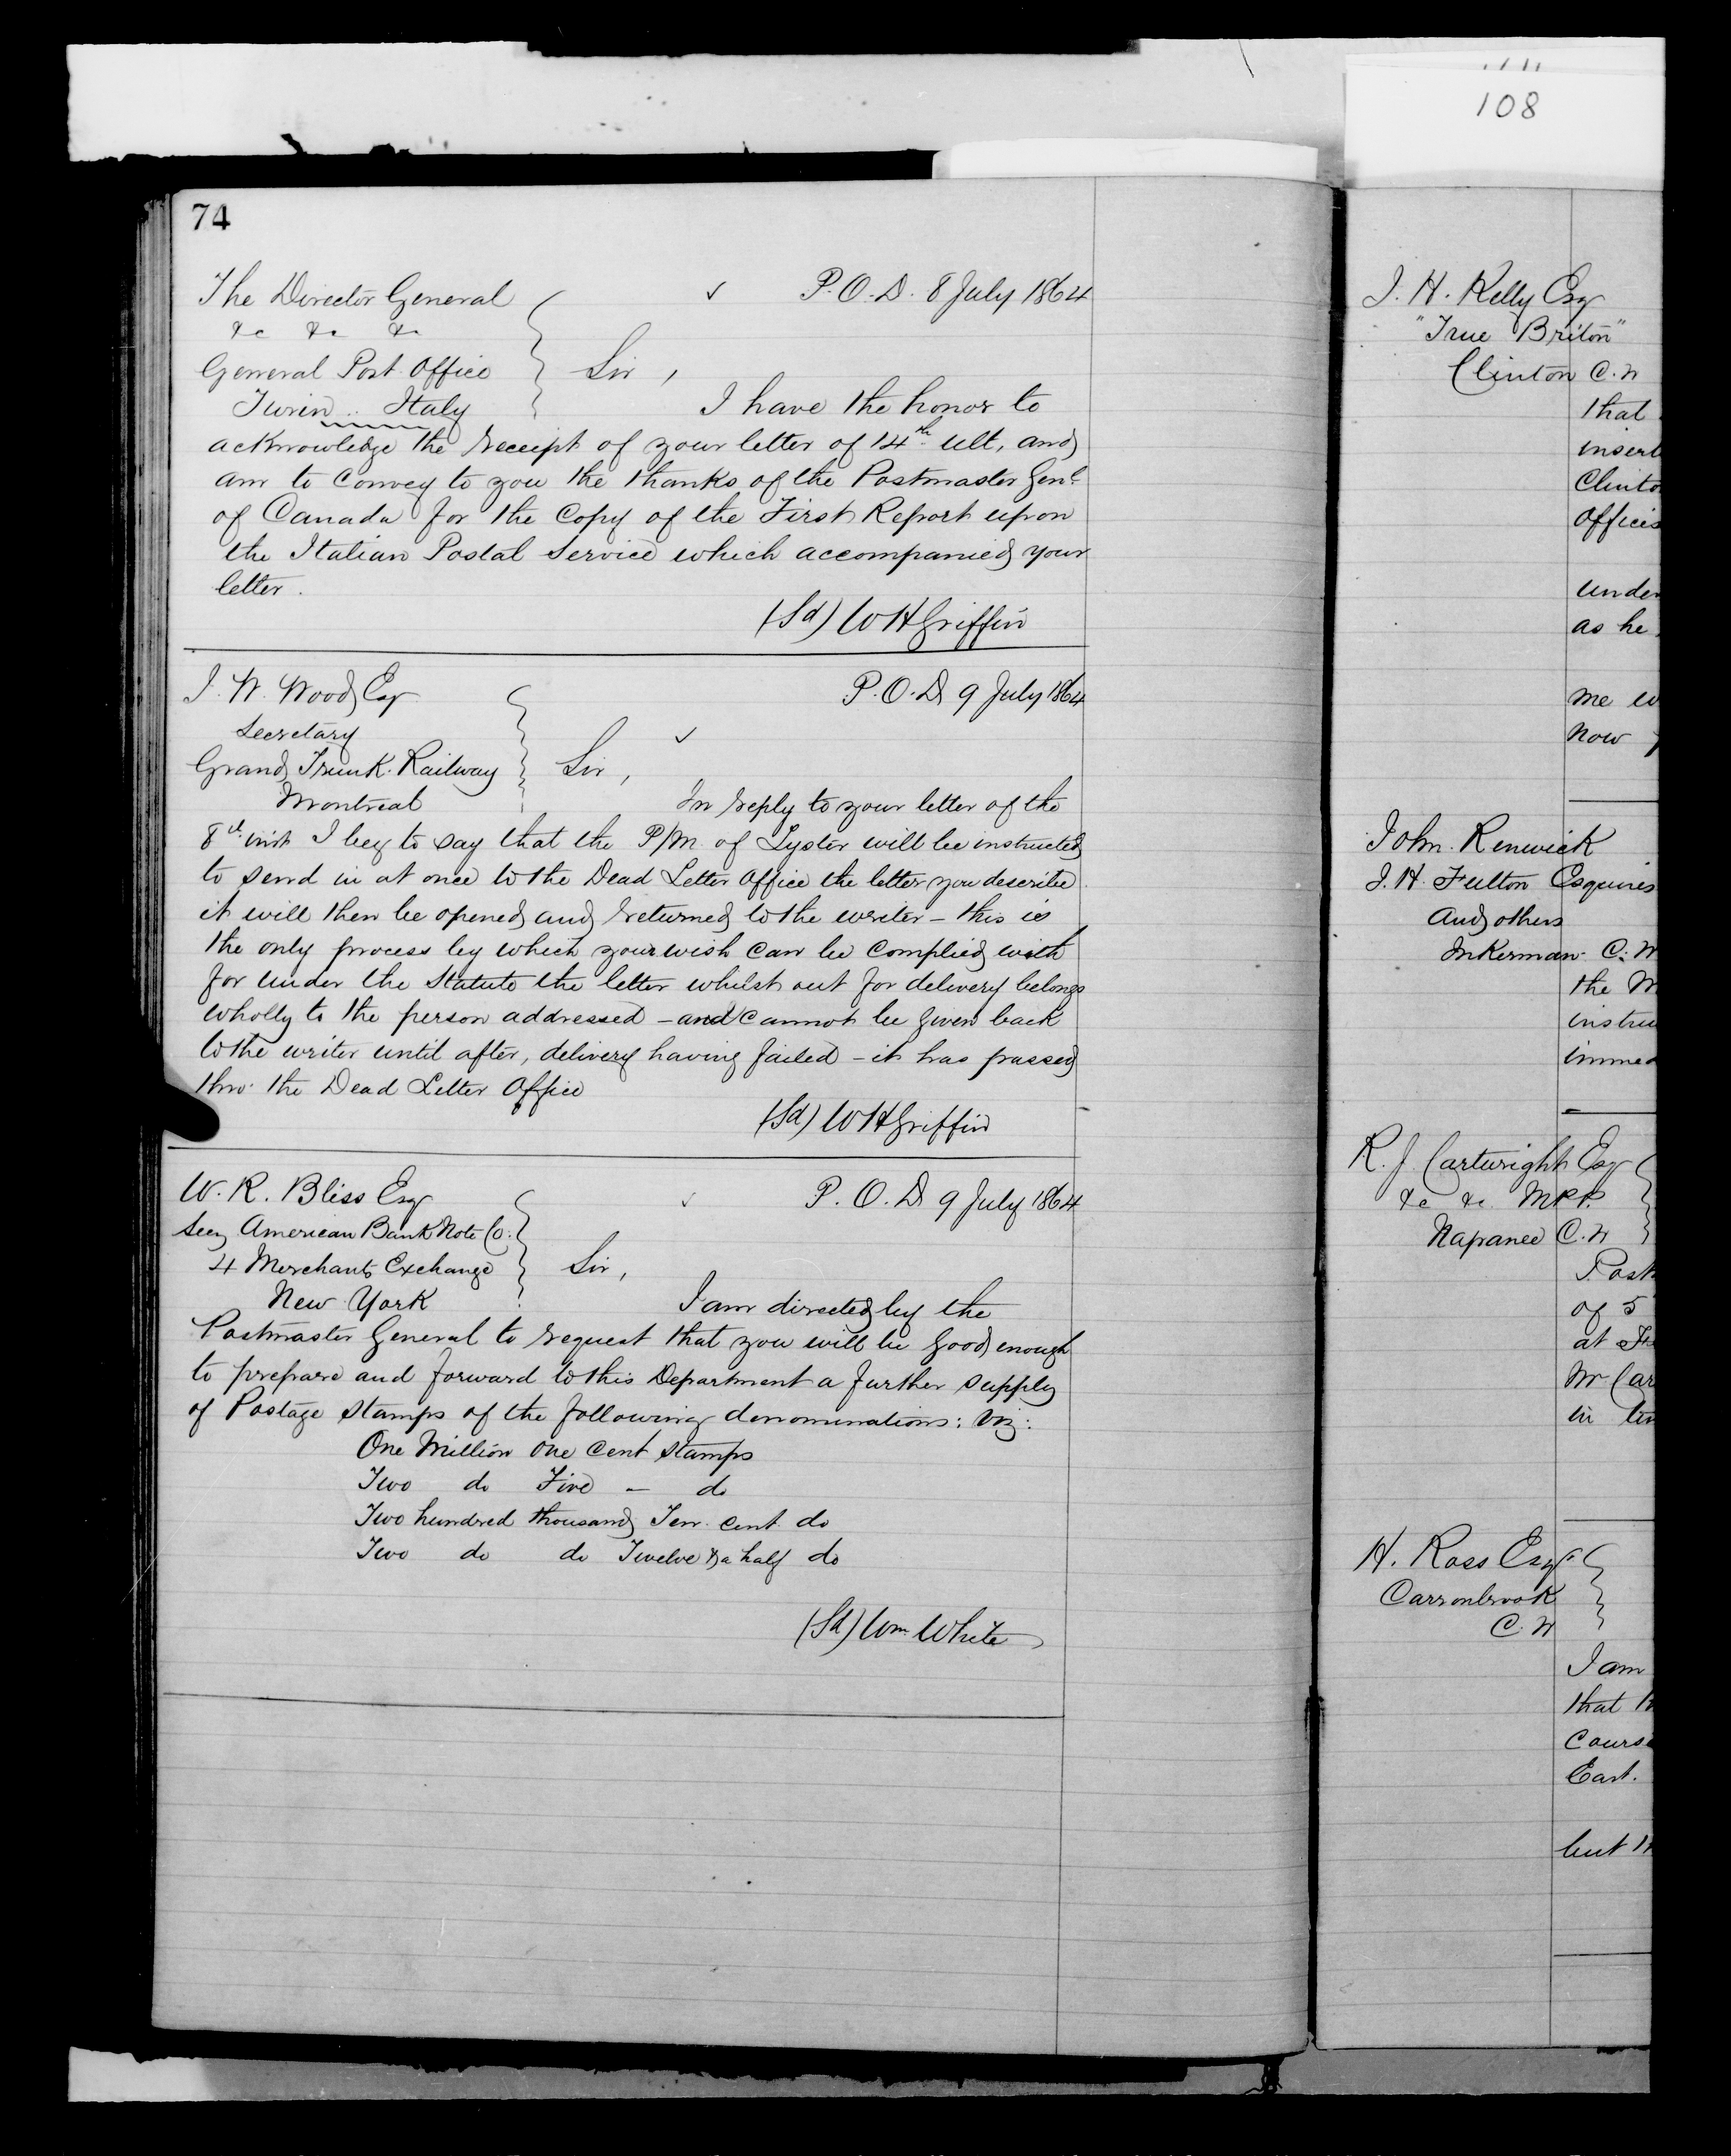 108
74
The Director General
&c &c &c
General Post Office
Turin .. Italy
✓ P.O.D. 8 July 1864
Sir,
I have the honor to
acknowledge the receipt of your letter of 14th ult, and
am to convey to you the thanks of the Postmaster Genl
of Canada for the Copy of the First Report upon
the Italian Postal Service which accompanied your
letter.
(Sd) W H Griffin
J. W. Wood Esq
Secretary
Grand Trunk Railway
Montreal
P.O.D 9 July 1864
✓
Sir,
In reply to your letter of the
8th inst I beg to say that the P/M of Lyster will be instructed
to send in at once to the Dead Letter Office the letter you describe
it will then be opened and returned to the writer – this is
the only process by which your wish can be complied with
for under the Statute the letter whilst out for delivery belongs
wholly to the person addressed – and cannot be given back
to the writer until after, delivery having failed – it has passed
thro' the Dead Letter Office
(Sd) W H Griffin
W. R. Bliss Esq
Secy American Bank Note Co:
4 Merchants Exchange
New York
✓ P.O.D 9 July 1864
Sir,
I am directed by the
Postmaster General to request that you will be good enough
to prepare and forward to this Department a further supply
of Postage Stamps of the following denominations: viz:
One Million One Cent Stamps
Two do Five – do
Two hundred thousand Ten Cent do
Two do do Twelve & a half do
(Sd) Wm White
J. H. Kelly Esq
"True Briton"
Clinton C.W
that
insert
Clinto
Offices
under
as he
me w
now
John Renwick
J. H. Fulton Esquires
And others
Inkerman C.W
the M
instru
immed
R. J. Cartwright Esq
&c &c M.P.P.
Napanee C.W
Post
of 5
at
Mr Car
in
H. Ross Esqr
Carronbrook
C.W
I am
that
Course
East.
but